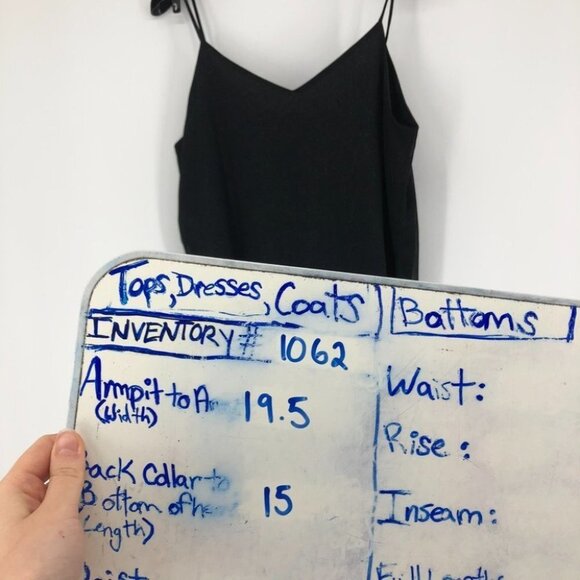 Tops, Dresses, Coats
INVENTORY # 1062
Armpit to A
(Width)
19.5
Back Collar to
Bottom of he
(Length)
15
Bottoms
Waist:
Rise:
Inseam: